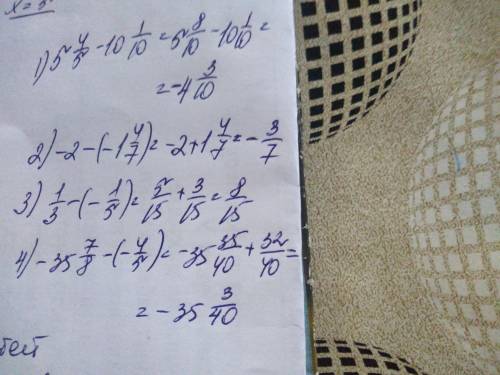 x = 5
1) 5 4/5 - 10 1/10 = 5 8/10 - 10 1/10 =
= -4 3/10
2) -2 - (-1 4/7) = -2 + 1 4/7 = -3/7
3) 1/3 - (-1/5) = 5/15 + 3/15 = 8/15
4) -35 7/8 - (-4/5) = -35 35/40 + 32/40 =
= -35 3/40